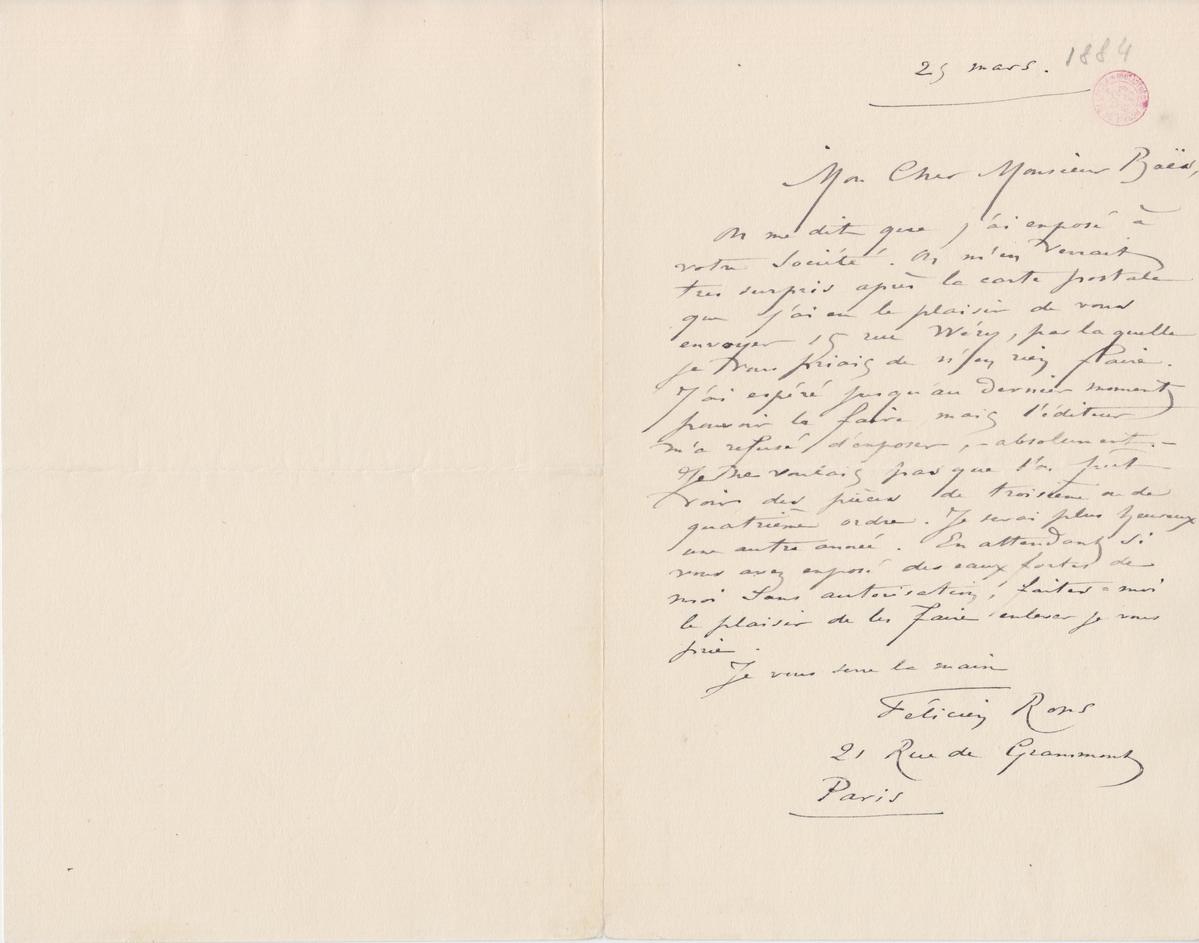 25 mars. 1884
Mon Cher Monsieur Baës,
On me dit que j'ai exposé à
votre Société. On m'en verrait
très surpris après la carte postale
que j'ai eu le plaisir de vous
envoyer 15 rue Wéry, par laquelle
je vous priais de n'en rien faire.
J'ai espéré jusqu'au dernier moment
pouvoir le faire mais l'éditeur
m'a refusé d'exposer, – absolument. –
Je ne voulais pas que l'on put
voir des pièces de troisième ou de
quatrième ordre. Je serai plus heureux
une autre année. En attendant si
vous avez exposé des eaux fortes de
moi sans autorisation, faites-moi
le plaisir de les faire enlever je vous
prie.
Je vous serre la main
Félicien Rops
21 Rue de Grammont
Paris